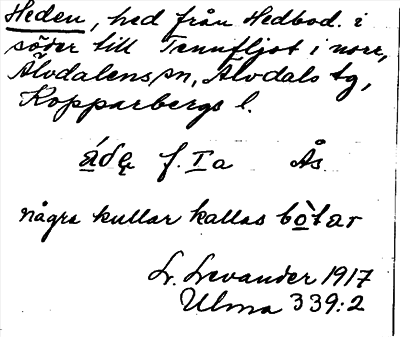 Heden, hed från Hedbod. i
söder till Tennfljot i norr,
Älvdalens sn, Älvdals tg,
Kopparbergs l.
f. Ia Ås
några kullar kallas bòtar
L. Levander 1917
Ulma 339:2